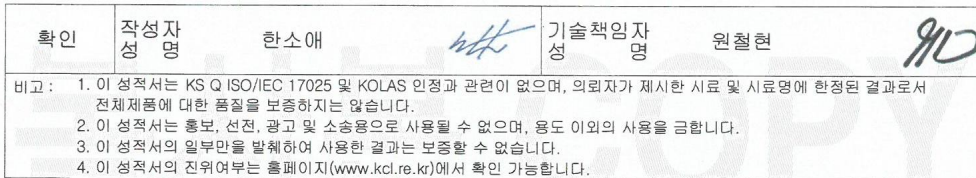 확인 작성자 성 명 한소애 기술책임자 성 명 원철현
비고 : 1. 이 성적서는 KS Q ISO/IEC 17025 및 KOLAS 인정과 관련이 없으며, 의뢰자가 제시한 시료 및 시료명에 한정된 결과로서
전체제품에 대한 품질을 보증하지는 않습니다.
2. 이 성적서는 홍보, 선전, 광고 및 소송용으로 사용될 수 없으며, 용도 이외의 사용을 금합니다.
3. 이 성적서의 일부만을 발췌하여 사용한 결과는 보증할 수 없습니다.
4. 이 성적서의 진위여부는 홈페이지(www.kcl.re.kr)에서 확인 가능합니다.
COPY